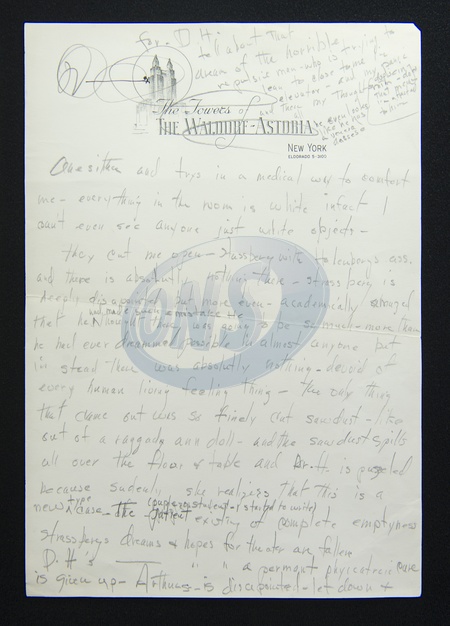 for D H.
tell about that
dream of the horrible
repulsive man - who is trying to
lean to close to me in
elevator - and my panic
and then my thought despising
him -
The Towers of
THE WALDORF-ASTORIA
NEW YORK
ELDORADO 5-3100
and trys in a medical way to comfort
me - everything in the room is white infact I
cant even see anyone just white objects -
they cut me open - Strassberg with Hohenbergs ass.
and there is absolutly nothing there - Strassberg is
deeply disapointed but more even - academically amazed
that he had made such a mistake. He
thought there was going to be so much - more than
he had ever dreamed possible in almost anyone but
in stead there was absolutly nothing - devoid of
every human living feeling thing - the only thing
that came out was so finely cut sawdust - like
out of a raggady ann doll - and the sawdust spills
all over the floor & table and Dr. H. is puzzled
because sudenly she realizes that this is a
new type case - The patient (pupil or student - I started to write)
existing of complete emptyness
Strassbergs dreams & hopes for theater are fallen
D. H's " " " a permant phycatric cure
is given up - Arthur is disapointed - let down +